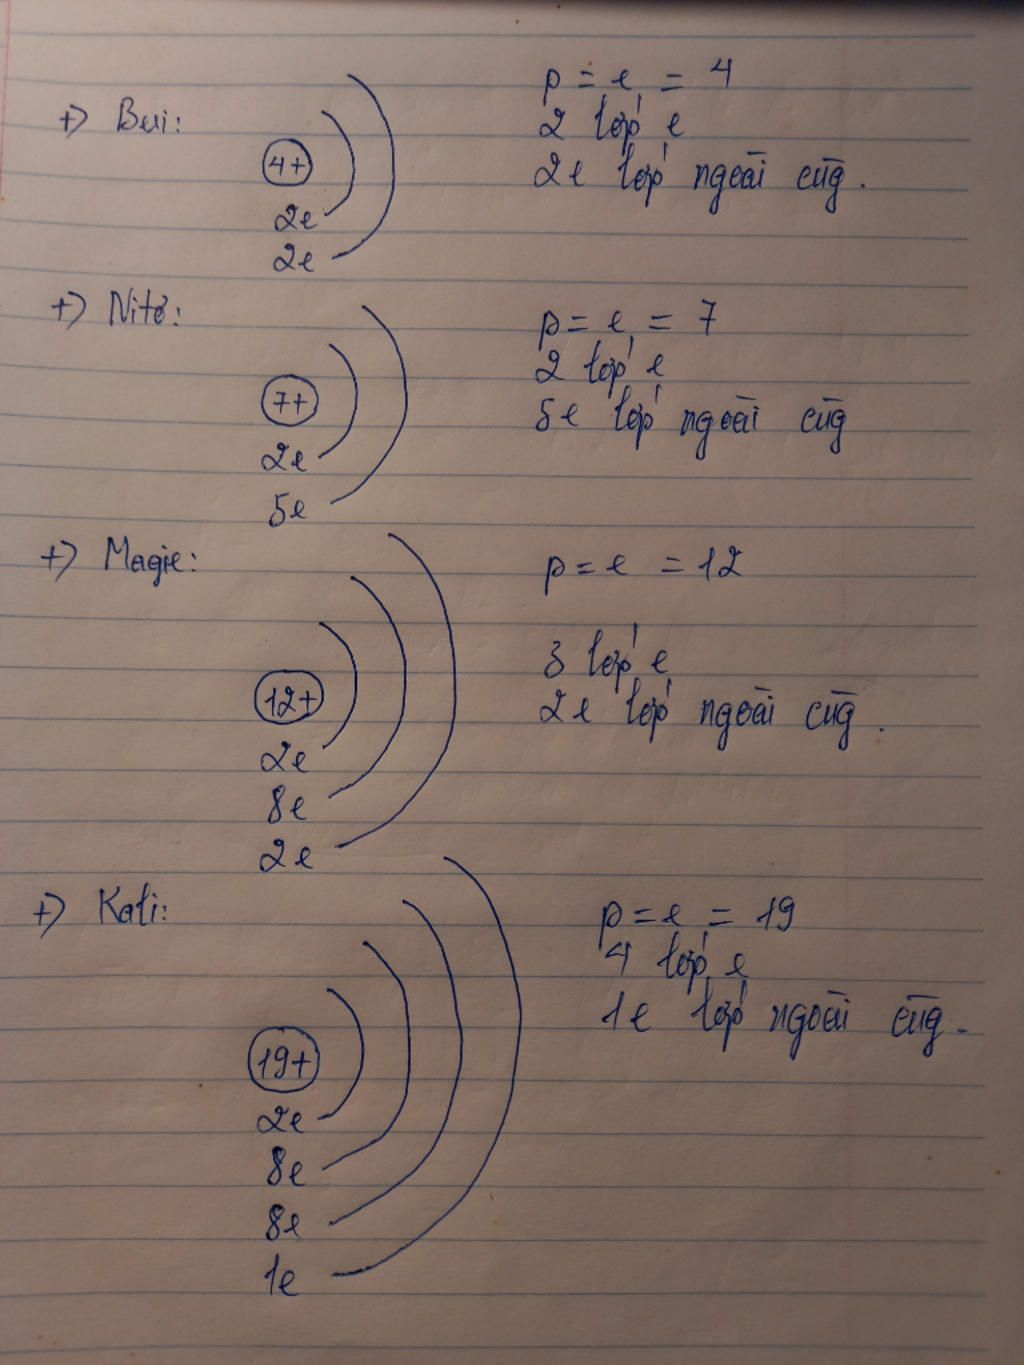 +) Beri:
4+
2e
2e
p = e = 4
2 lớp e
2e lớp ngoài cūg.
+) Nitơ:
7+
2e
5e
p = e = 7
2 lớp e
5e lớp ngoài cūg
+) Magie:
12+
2e
8e
2e
p = e = 12
3 lớp e
2e lớp ngoài cūg.
+) Kali:
19+
2e
8e
8e
1e
p = e = 19
4 lớp e
1e lớp ngoài cūg.